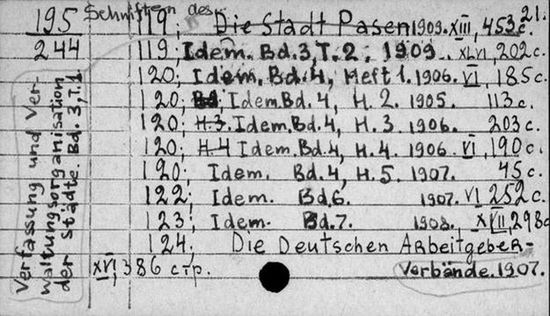 195 Schriften des
244
Verfassung und Ver-
waltungsorganisation
der Städte. Bd. 3, T. 1
XVI, 386 стр.
119; Die Stadt Pasen 1909. XIII, 453 c.
21.
119; Idem. Bd. 3, T. 2; 1909. XLVI, 202 c.
120; Idem, Bd. 4, Heft 1. 1906. VI, 185 c.
120; Idem Bd. 4, H. 2. 1905. 113 c.
120; H. 3. Idem. Bd. 4, H. 3. 1906. 203 c.
120; H. 4 Idem Bd. 4, H. 4. 1906. VI, 190 c.
120; Idem. Bd. 4, H. 5. 1907. 45 c.
122; Idem. Bd. 6. 1907. VI 252 c.
123; Idem. Bd. 7. 1908. XVII, 298 c
124. Die Deutschen Arbeitgeber-
Verbände. 1907.